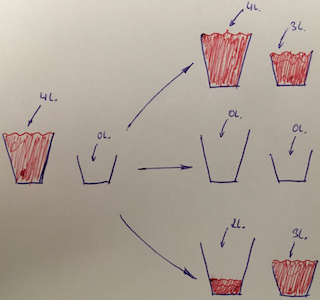 4L.
3L.
4L.
0L.
0L.
0L.
3L.